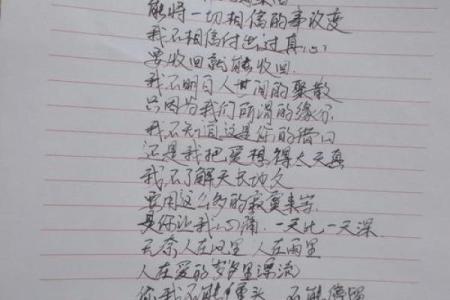 能将一切相信的事改变
我不相信付出过真心
要收回就能收回
我不明白人世间的聚散
只因为我们所谓的缘分
我不知道这是你的借口
还是我把爱想得太天真
我不了解天长地久
要用这么多的寂寞来等
是你让我心痛 一天比一天深
无奈人在风里 人在雨里
人在爱的岁月里漂流
你我不能回头 不能停留